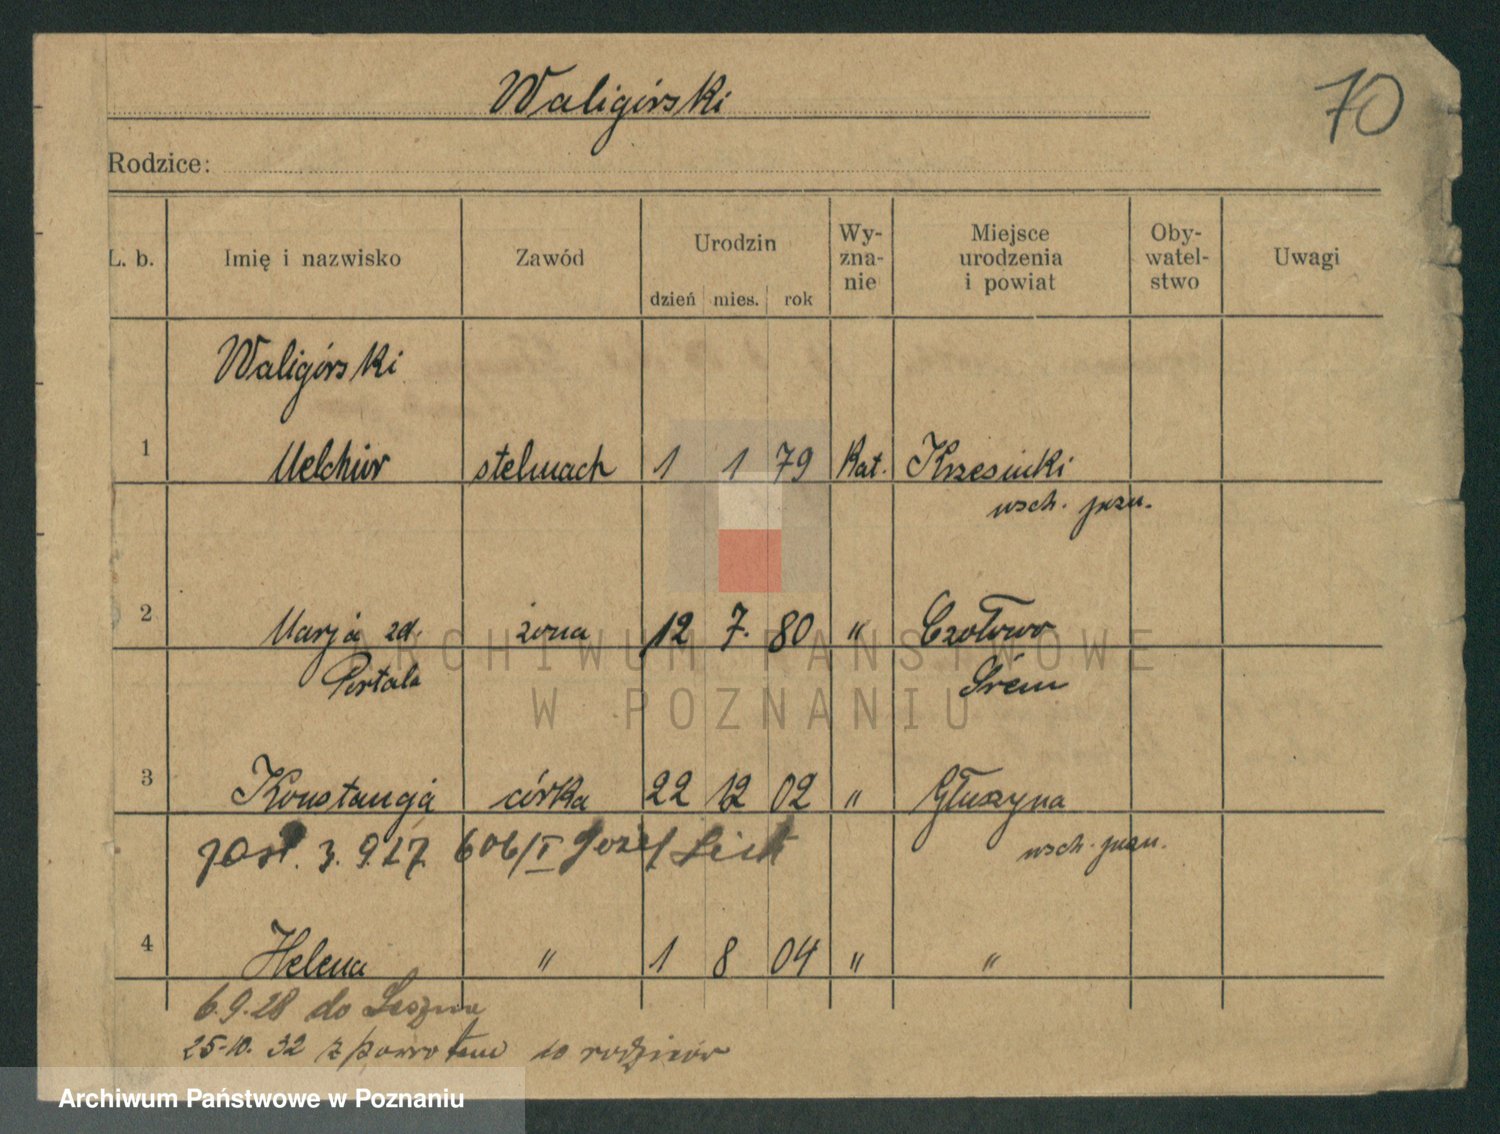 Waligórski
70
Rodzice:
L. b. Imię i nazwisko Zawód Urodzin dzień mies. rok Wy- zna- nie Miejsce urodzenia i powiat Oby- watel- stwo Uwagi
Waligórski
1 Melchior stelmach 1 1 79 Kat. Krzesinki
wsch. pozn.
2 Marja zd. żona 12 7. 80 " Czołowo
Portala Śrem
3 Konstancja córka 22 12 02 " Głuszyna
3.9.27. 606/I Józef wsch. pozn.
4 Helena " 1 8 04 " "
6.9.28 do Leszna
25.10.32 z powrotem do rodziców
ARCHIWUM PAŃSTWOWE
W POZNANIU
Archiwum Państwowe w Poznaniu